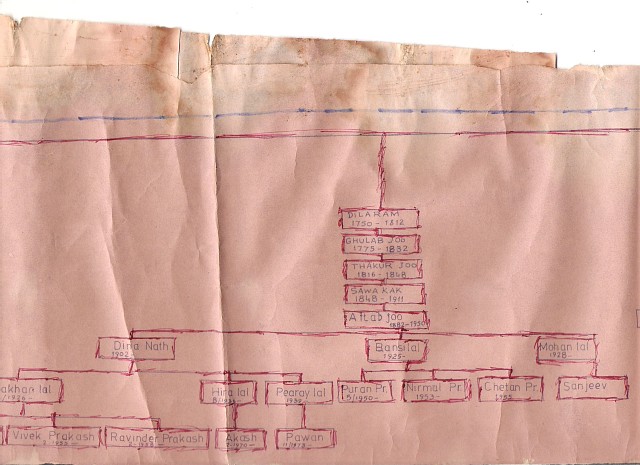 DILARAM
1750 - 1812
GHULAB JOO
1775 - 1832
THAKUR JOO
1816 - 1848
SAWA KAK
1848 - 1911
Aftab joo
1882-1950
Dina Nath
1902-
Bansilal
1925-
Mohan lal
1928-
akhan lal
/1926 -
Hira lal
Pearay lal
Puran Pr.
5/1950-
Nirmal Pr.
1953-
Chetan Pr.
1955
Sanjeev
Vivek Prakash
Ravinder Prakash
Akash
Pawan